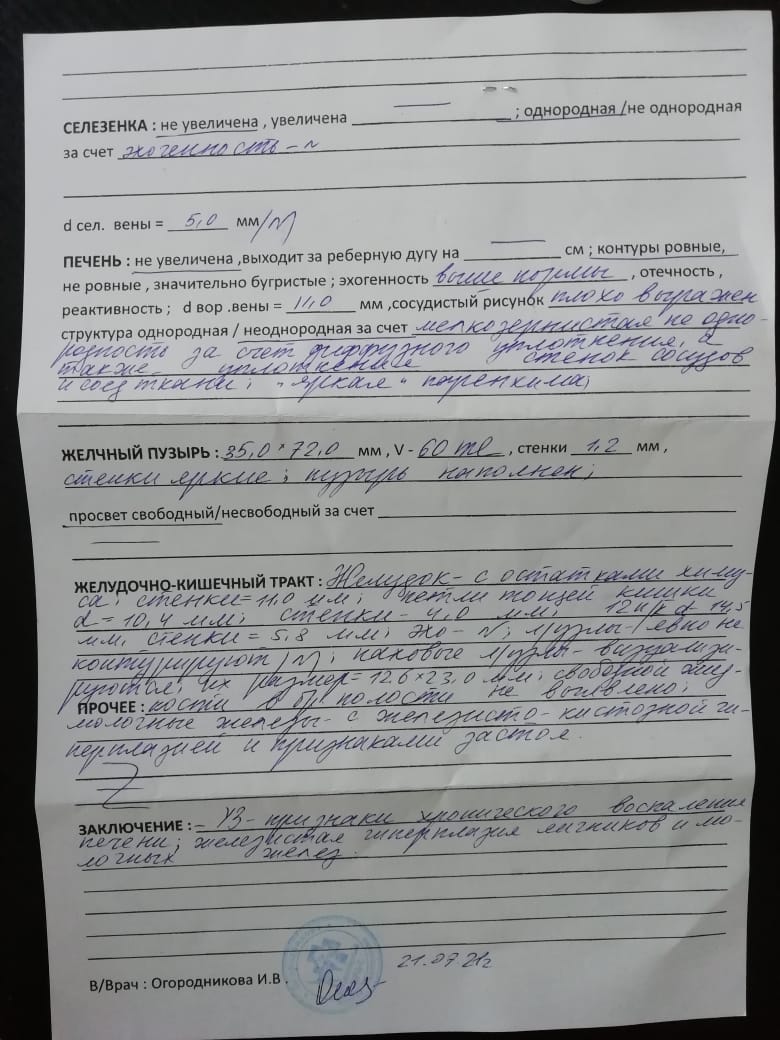 СЕЛЕЗЕНКА : не увеличена , увеличена ; однородная /не однородная
за счет эхогенность - N
d сел. вены = 5,0 мм/N
ПЕЧЕНЬ : не увеличена ,выходит за реберную дугу на см ; контуры ровные,
не ровные , значительно бугристые ; эхогенность выше нормы , отечность ,
реактивность ; d вор .вены = 11,0 мм ,сосудистый рисунок плохо выражен
структура однородная / неоднородная за счет мелкозернистая не одно-
родность за счет диффузного уплотнения, а
также уплотнение стенок сосудов
и соед ткани; "яркая" паренхима;
ЖЕЛЧНЫЙ ПУЗЫРЬ : 35,0 * 72,0 мм , V - 60 ml , стенки 1,2 мм ,
стенки яркие ; пузырь наполнен ;
просвет свободный/несвободный за счет
ЖЕЛУДОЧНО-КИШЕЧНЫЙ ТРАКТ : Желудок - с остатками химу-
са; стенки = 11,0 мм; петли тощей кишки
d = 10,4 мм; стенки - 4,0 мм; 12 п/к d 14,5
мм, стенки = 5,8 мм; эхо - N; л/узлы - явно не
контурируют /N; паховые л/узлы - визуализи-
руются, их размер = 12,6 × 23,0 мм; свободной жид-
ПРОЧЕЕ : кости в бр полости не выявлено;
молочные железы - с железисто-кистозной ги-
перплазией и признаками застоя.
ЗАКЛЮЧЕНИЕ : - УЗ - признаки хронического воспаления
печени; железистая гиперплазия яичников и мо-
лочных желез.
21.07.21г
В/Врач : Огородникова И.В .